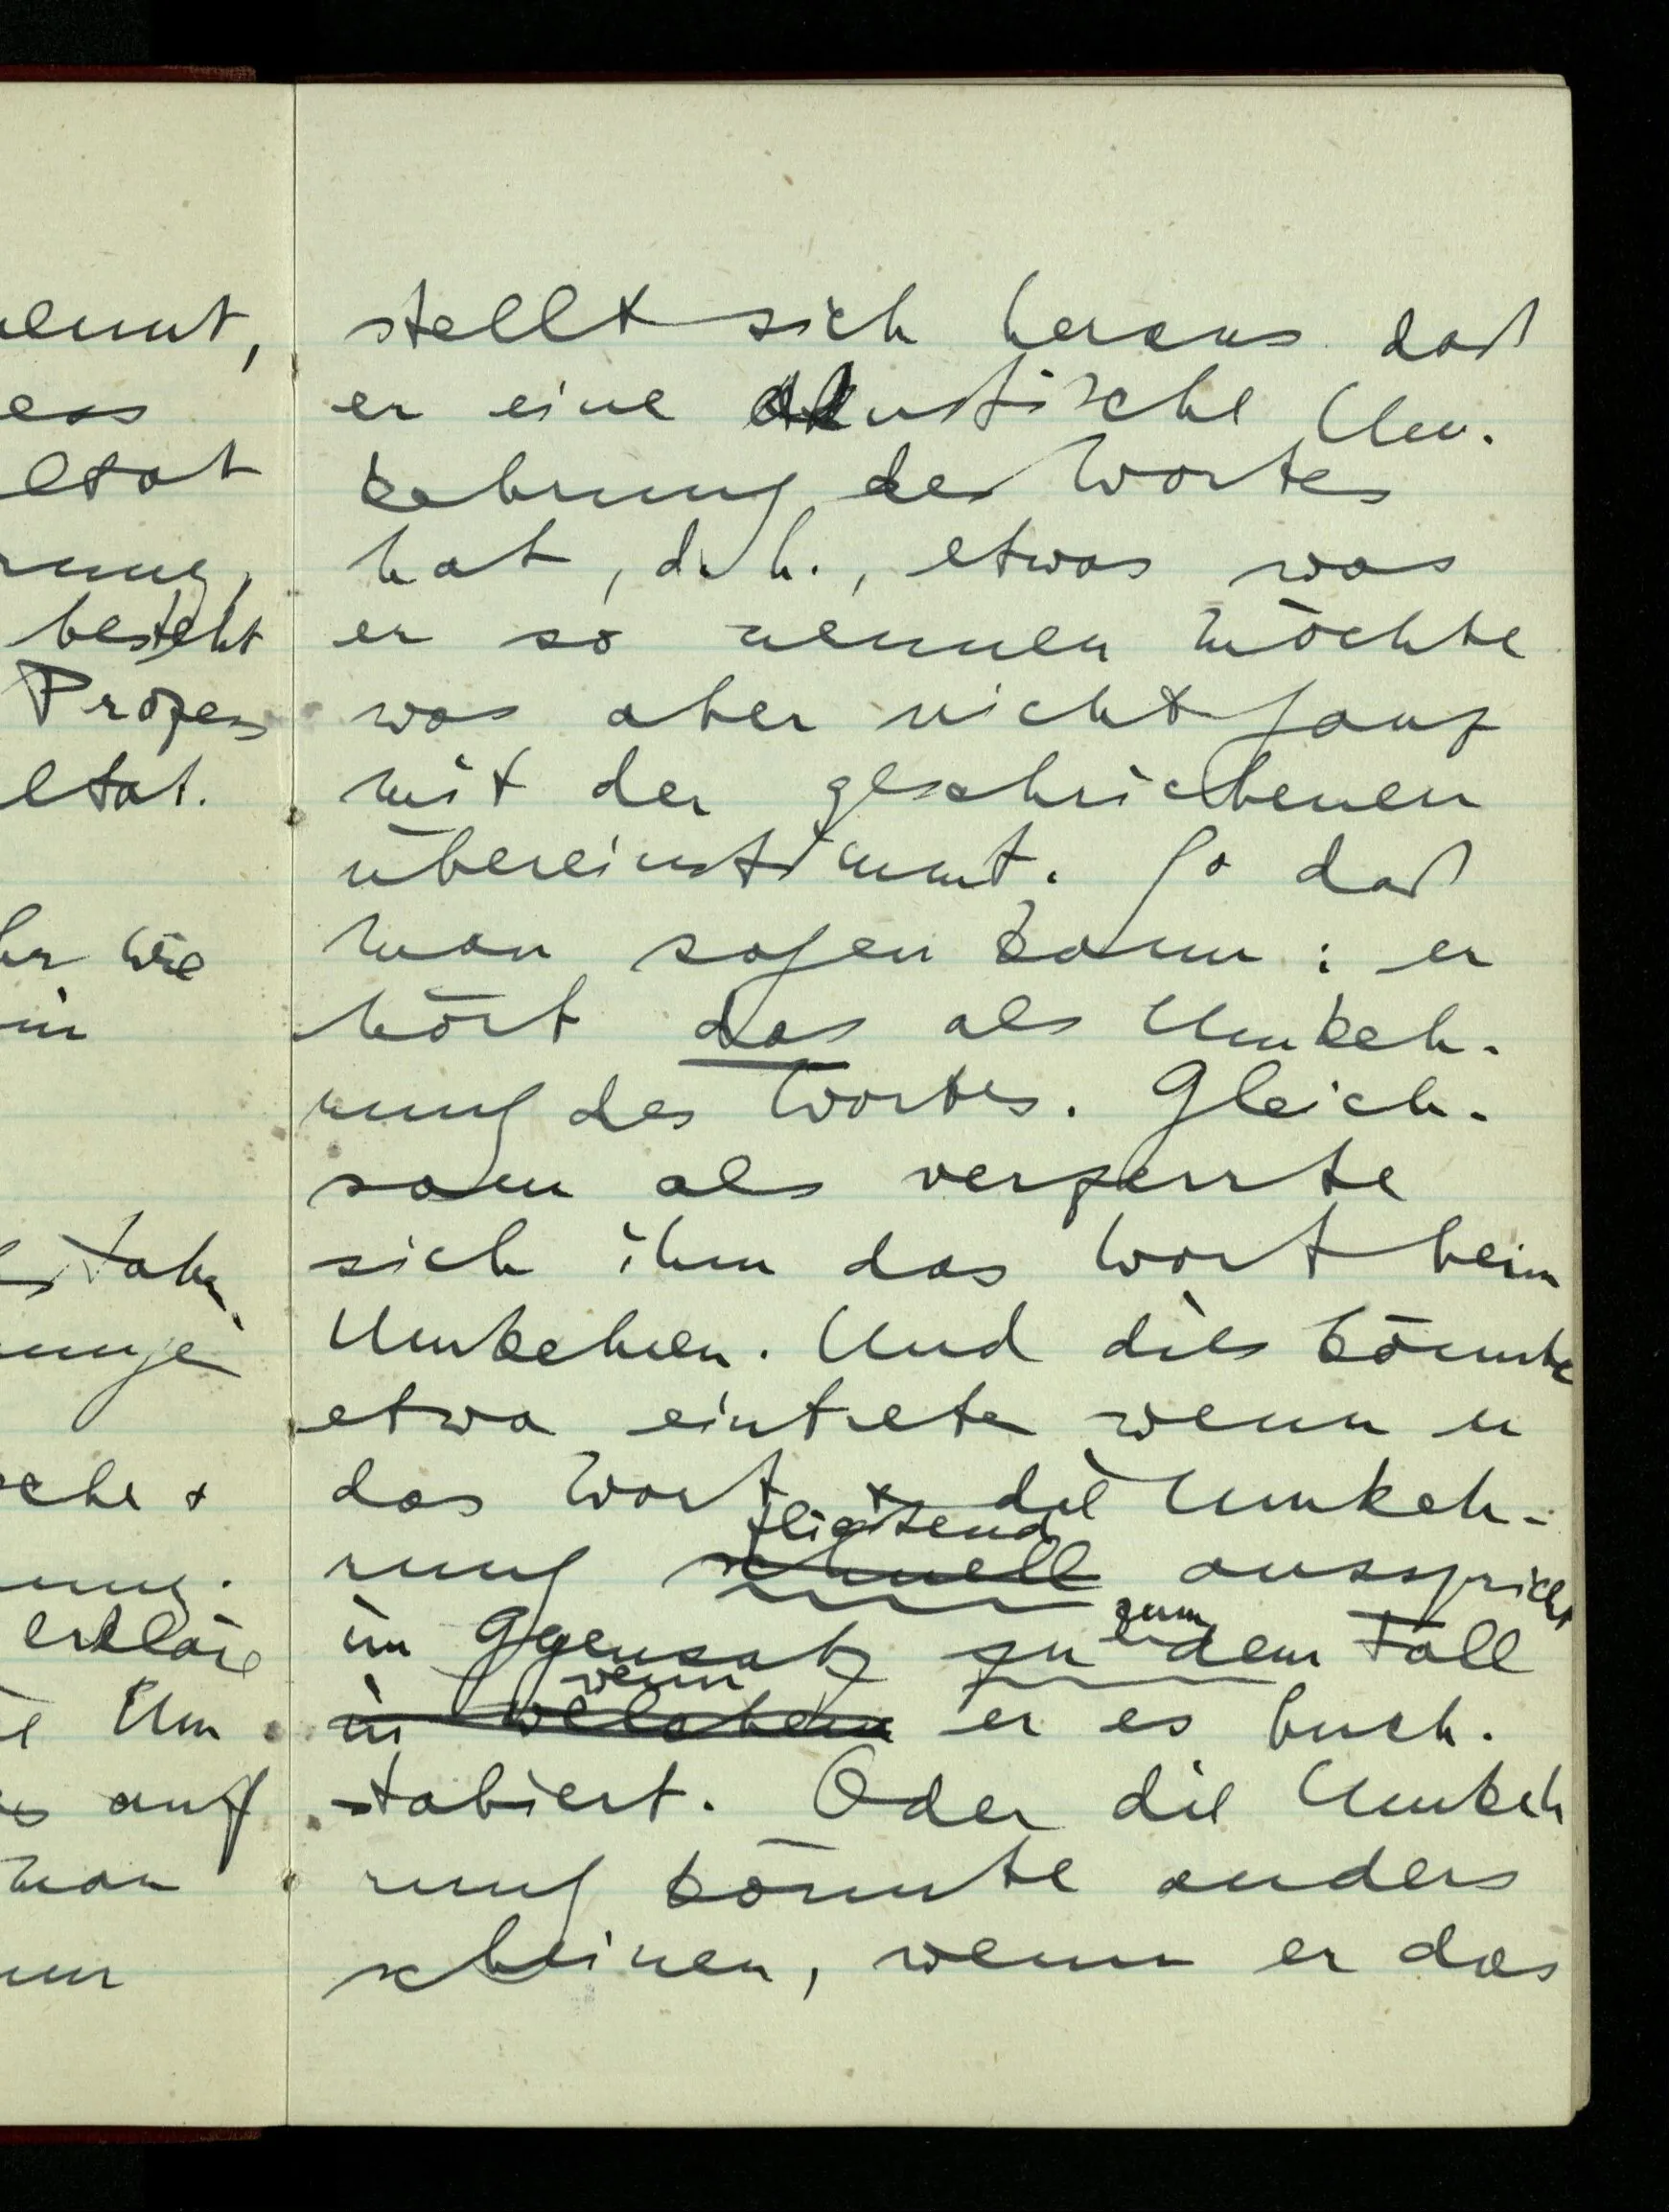 lennt,
besteht
Prozess
wie
erkläre
Um
auf
man
stellt sich heraus daß
er eine akustische Um-
kehrung des Wortes
hat, d.h., etwas was
er so nennen möchte
was aber nicht ganz
mit der geschriebenen
übereinstimmt. So daß
man sagen kann: er
hört das als Umkeh-
rung des Wortes. Gleich-
sam als verzerrte
sich ihm das Wort beim
Umkehren. Und dies könnte
etwa eintreten wenn er
das Wort & die Umkeh-
fließend
rung schnell ausspricht
zum
im Ggensatz zu dem Fall
wenn
in welchem er es buch-
stabiert. Oder die Umkeh
rung könnte anders
scheinen, wenn er das